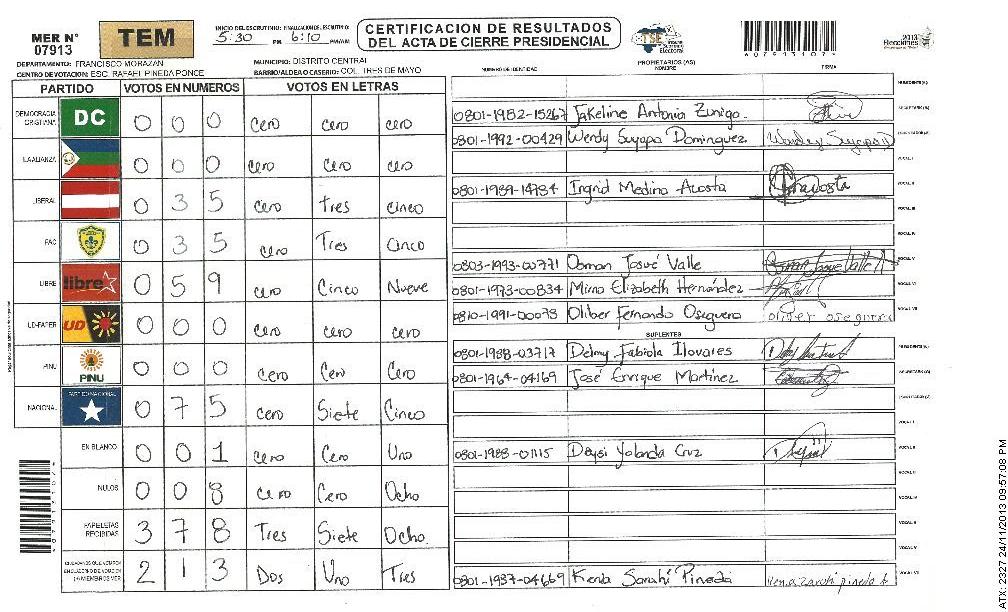 MER N° 07913
TEM
INICIO DEL ESCRUTINIO: 5:30 PM FINALIZACION DEL ESCRUTINIO: 6:10 PM/AM
CERTIFICACION DE RESULTADOS
DEL ACTA DE CIERRE PRESIDENCIAL
TSE Tribunal Supremo Electoral
2013 Elecciones
DEPARTAMENTO: FRANCISCO MORAZAN MUNICIPIO: DISTRITO CENTRAL
CENTRO DE VOTACION: ESC. RAFAEL PINEDA PONCE BARRIO/ALDEA O CASERIO: COL. TRES DE MAYO
NUMERO DE IDENTIDAD PROPIETARIOS (AS) NOMBRE FIRMA
PARTIDO VOTOS EN NUMEROS VOTOS EN LETRAS
DEMOCRACIA CRISTIANA DC 0 0 0 cero cero cero
ALIANZA 0 0 0 cero cero cero
LIBERAL 0 3 5 cero tres cinco
PAC 0 3 5 cero Tres Cinco
LIBRE libre 0 5 9 cero Cinco Nueve
UD-FAPER UD 0 0 0 cero cero cero
PINU PINU 0 0 0 cero Cero Cero
NACIONAL PARTIDO NACIONAL 0 7 5 cero Siete Cinco
EN BLANCO 0 0 1 cero Cero Uno
NULOS 0 0 8 cero Cero Ocho
PAPELETAS RECIBIDAS 3 7 8 Tres Siete Ocho
CIUDADANOS QUE VOTARON 2 1 3 Dos Uno Tres
PRESIDENTE(A)
0801-1982-15267 Jakeline Antonia Zuniga SECRETARIO (A)
0801-1992-00429 Wendy Suyapa Dominguez Wendy Suyapa D
VOCAL I
0801-1989-14784 Ingrid Medina Acosta VOCAL II
VOCAL III
VOCAL IV
0803-1993-00771 Osman Josué Valle VOCAL V
0801-1973-00834 Mirna Elizabeth Hernández VOCAL VI
0810-1991-00073 Oliber Fernando Oseguera VOCAL VII
SUPLENTES
0801-1988-03717 Delmy Fabiola Ilovares PRESIDENTE(A)
0801-1964-04169 José Enrique Martínez SECRETARIO (A)
VOCAL I
0801-1988-01115 Deysi Yolanda Cruz VOCAL II
VOCAL IV
VOCAL V
0801-1987-04669 Kenia Sarahí Pineda VOCAL VII
ATX-2327 24/11/2013 09:57:08 PM